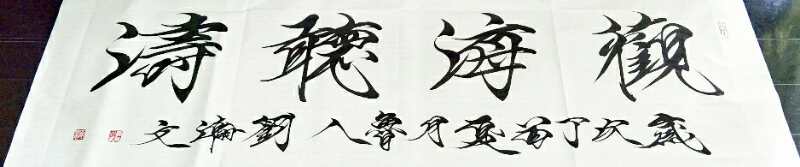 觀海聽濤
歲次丁酉夏月魯人劉文